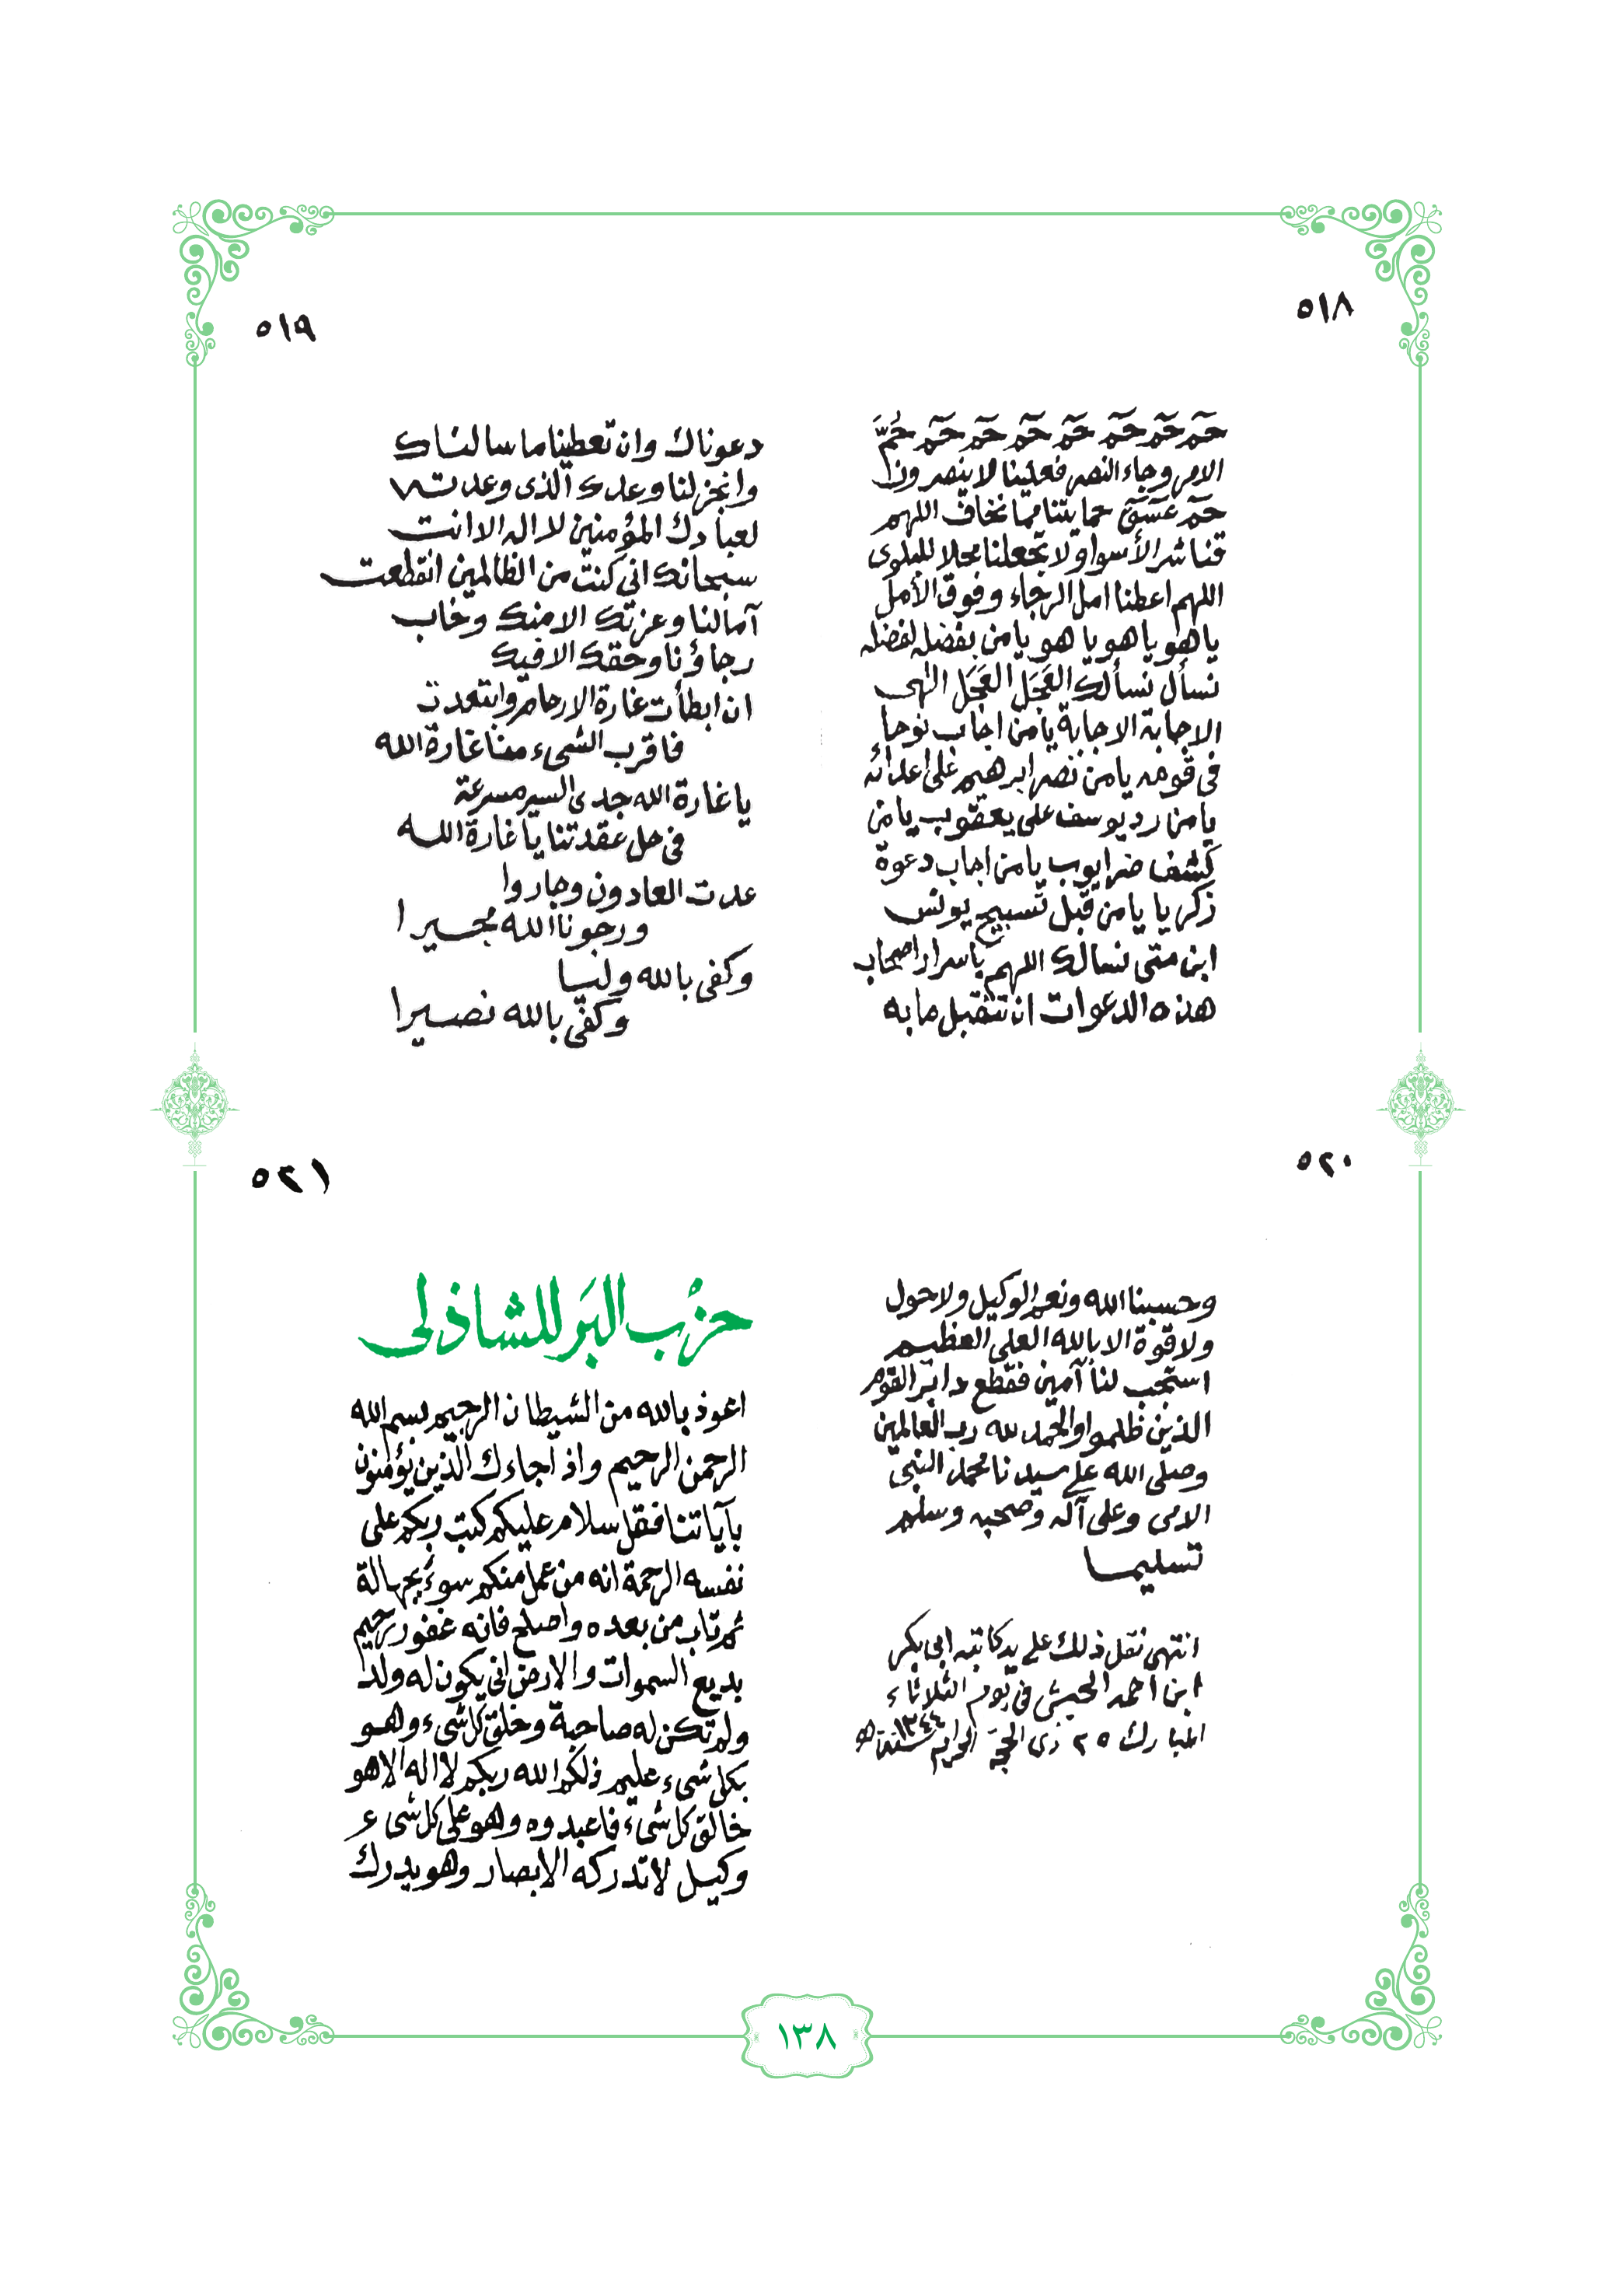 ٥١٨
حٓمٓ حٓمٓ حٓمٓ حٓمٓ حٓمٓ حٓمٓ حٓمٓ حُمَّ
الامر وجاء النصر فعلينا لا ينصرون
حٓمٓ عٓسٓقٓ حمايتنا مما نخاف اللهم
قنا شر الأسوا ولا تجعلنا محلا للبلوى
اللهم اعطنا امل الرجاء وفوق الأمل
يا هو يا هو يا هو يا من بفضله لفضله
نسأل نسألك العَجَل العَجَل الٰهى
الاجابة الاجابة يا من اجاب نوحا
فى قومه يا من نصر ابرهيم على اعدائه
يا من رد يوسف على يعقوب يا من
كشف ضر ايوب يا من اجاب دعوة
زكريا يا من قبل تسبيح يونس
ابن متى نسالك اللهم باسرار اصحاب
هذه الدعوات ان تتقبل ما به
٥١٩
دعوناك وان تعطينا ما سالناك
وانجز لنا وعدك الذى وعدته
لعبادك المؤمنين لا اله الا انت
سبحانك انى كنت من الظالمين انقطعت
آمالنا وعزتك الا منك وخاب
رجاؤنا وحقك الا فيك
ان ابطأت غارة الارحام وابتعدت
فاقرب الشىء منا غارة الله
يا غارة الله جدى السير مسرعة
فى حل عقدتنا يا غارة الله
عدت العادون وجاروا
ورجونا الله مجيرا
وكفى بالله وليا
وكفى بالله نصيرا
٥٢٠
وحسبنا الله ونعم الوكيل ولا حول
ولا قوة الا بالله العلى العظيم
استجب لنا آمين فقطع دابر القوم
الذين ظلموا والحمد لله رب العالمين
وصلى الله على سيدنا محمد النبى
الامى وعلى آله وصحبه وسلم
تسليما
انتهى نقل ذلك على يد كاتبه ابى بكر
ابن احمد الحبشى فى يوم الثلاثاء
المبارك ٢٥ ذى الحجة الحرام سنة ١٣٤٤ هـ
٥٢١
حزُب البَر للشاذلى
اعوذ بالله من الشيطان الرجيم بسم الله
الرحمن الرحيم واذا جاءك الذين يؤمنون
بآياتنا فقل سلام عليكم كتب ربكم على
نفسه الرحمة انه من عمل منكم سوءً بجهالة
ثم تاب من بعده واصلح فانه غفور رحيم
بديع السموات والارض انى يكون له ولد
ولم تكن له صاحبة وخلق كل شىء وهو
بكل شىء عليم ذلكم الله ربكم لا اله الا هو
خالق كل شىء فاعبدوه وهو على كل شىء
وكيل لا تدركه الابصار وهو يدرك
١٣٨